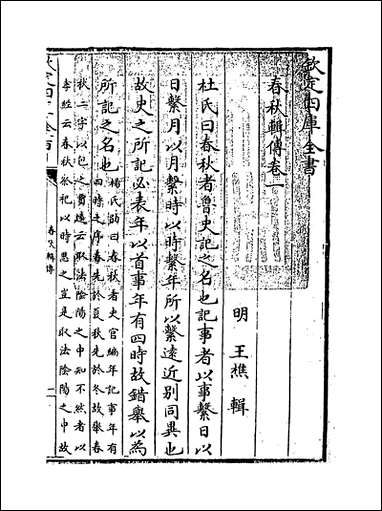 欽定四庫全書
春秋輯傳卷一
明 王樵 輯
杜氏曰春秋者魯史記之名也記事者以事繫日以
日繫月以月繫時以時繫年所以繫遠近別同異也
故史之所記必表年以首事年有四時故錯舉以為
所記之名也
楊氏助曰春秋者史官編年記事年有
四時之序春先於夏秋先於冬故舉春
秋二字以包之賈逵云取法陰陽之中知不然者以
孝經云春秋祭祀以時思之豈是取法陰陽之中故
春秋輯傳